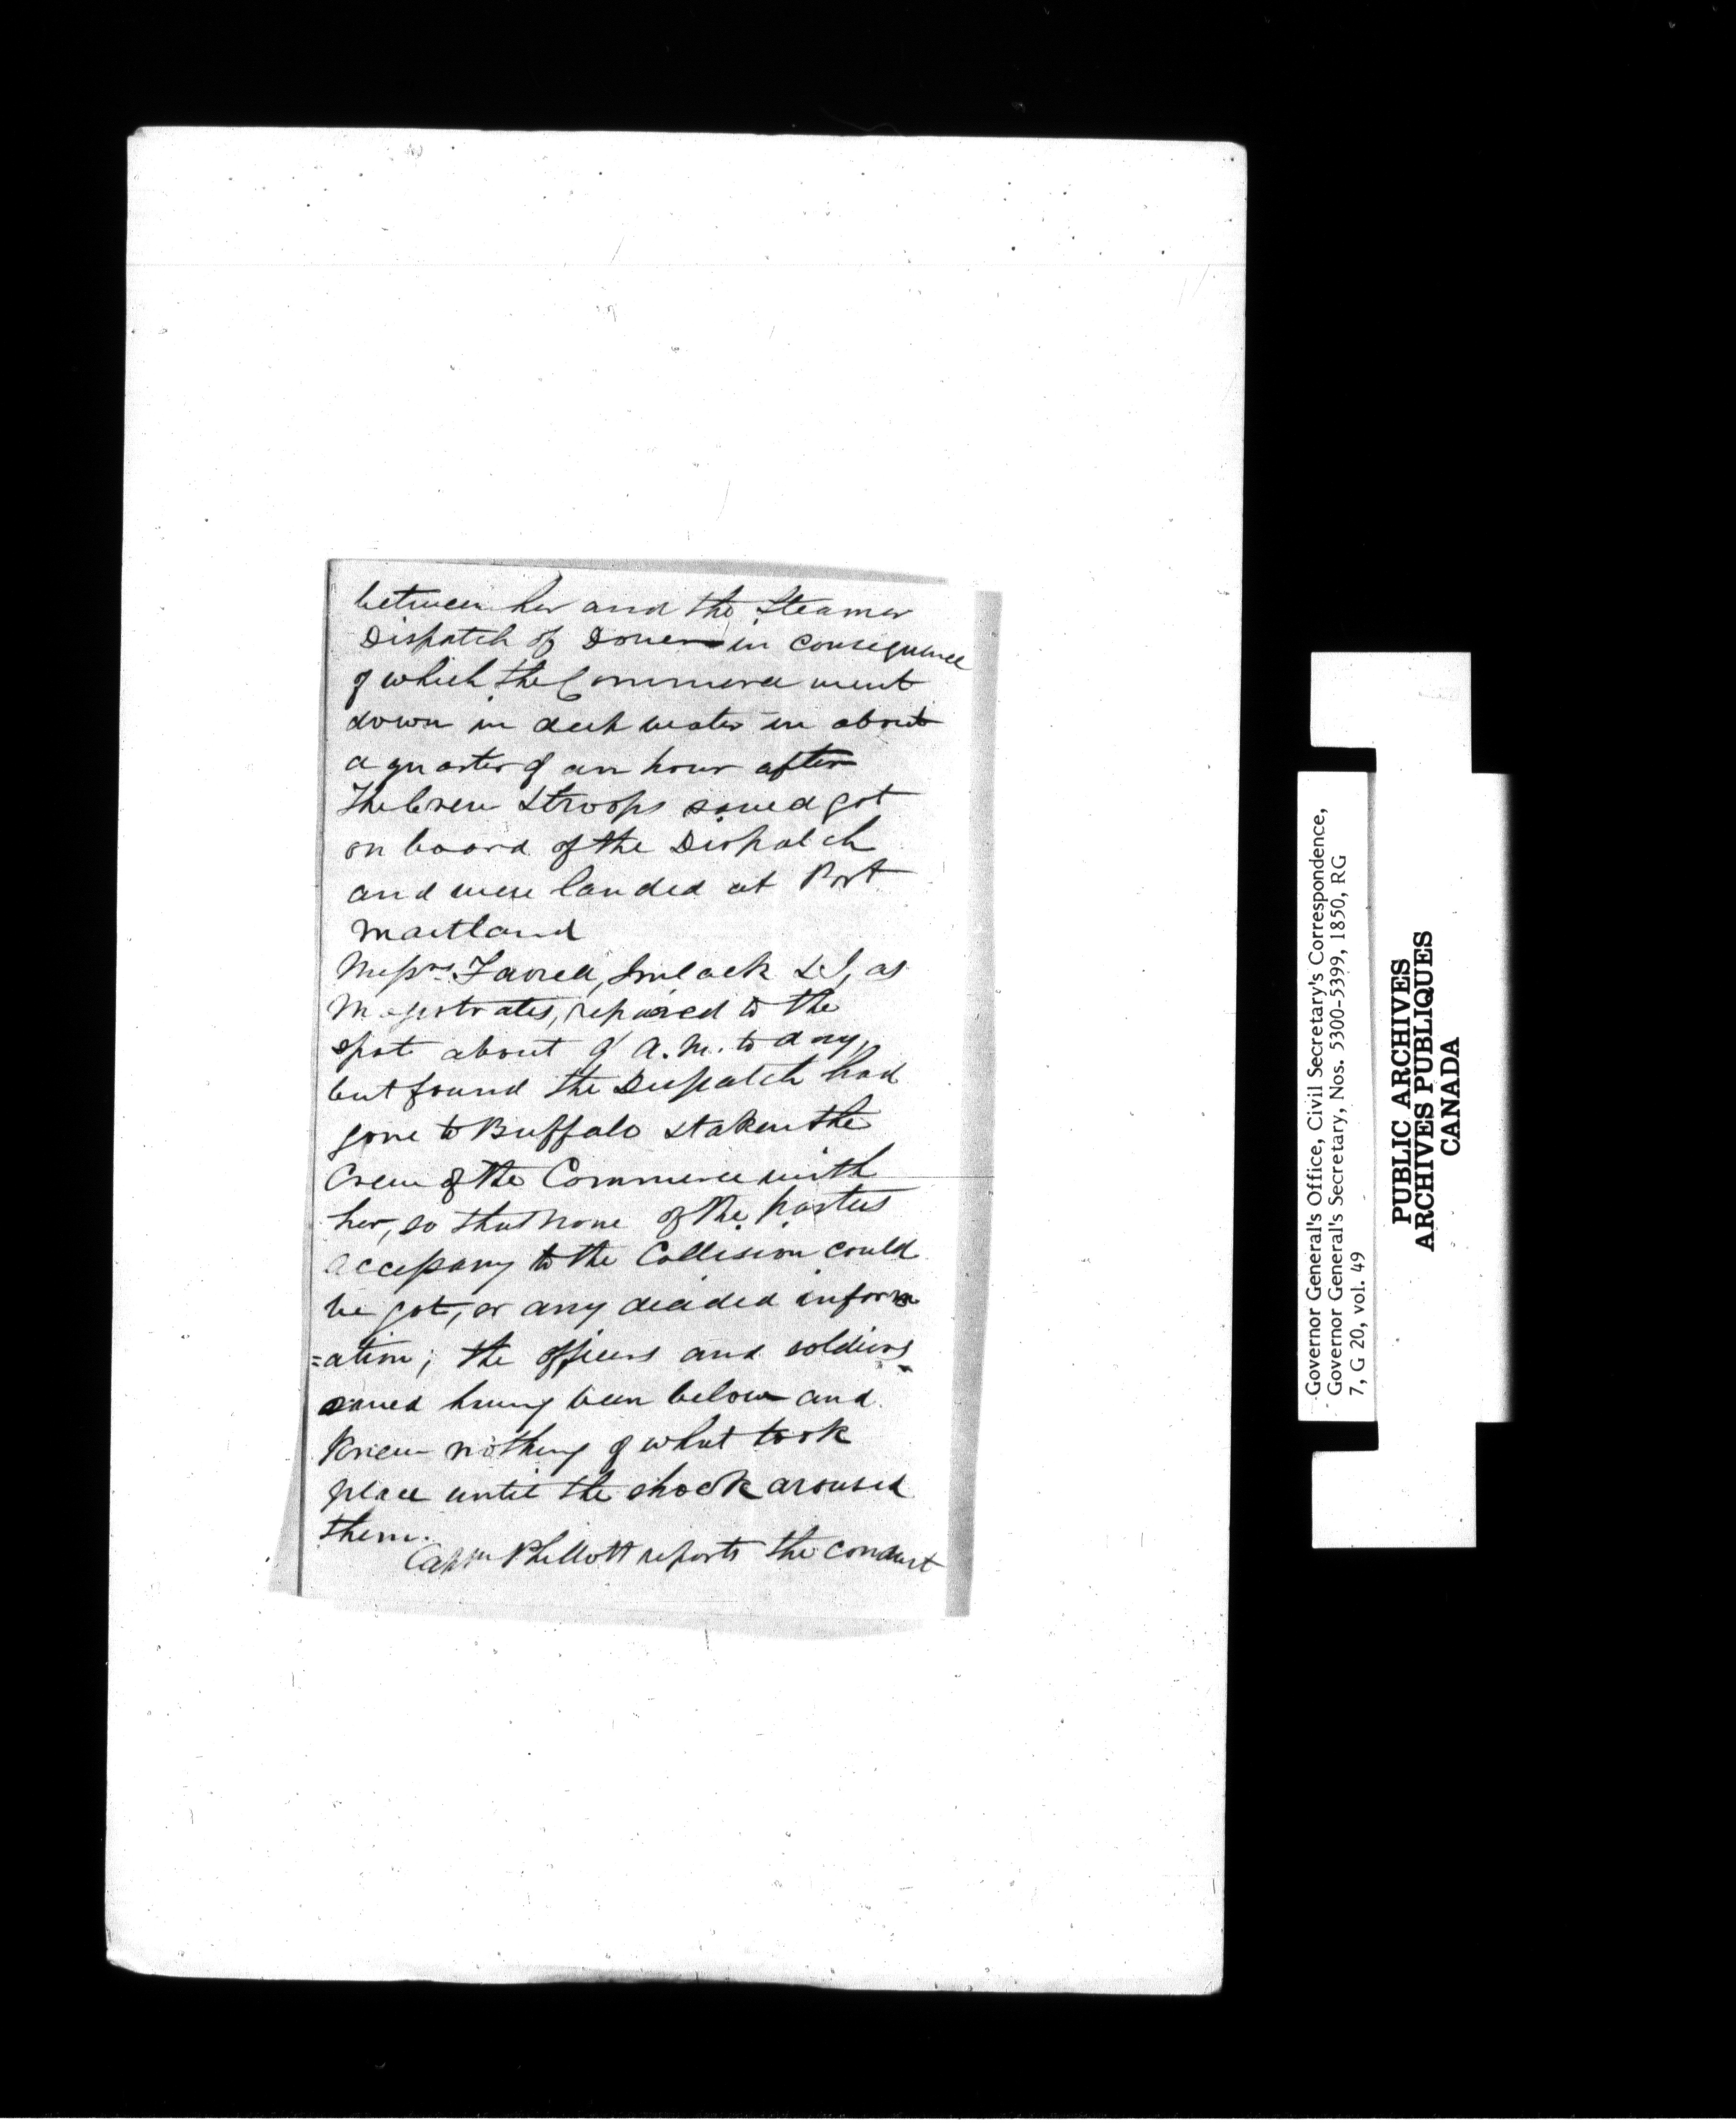 between her and the Steamer
Dispatch of Dover in consequence
of which the Commerce went
down in deep water in about
a quarter of an hour after
The Crew & troops saved got
on board of the Dispatch
and were landed at Port
Maitland
Messrs Farrell, Imlack & I, as
Magistrates, repaired to the
spot about 9 A.M. to day,
but found the Dispatch had
gone to Buffalo & taken the
Crew of the Commerce with
her, so that none of the parties
accessary to the Collision could
be got, or any decided inform
=ation; the officers and soldiers
saved having been below and
knew nothing of what took
place until the shock aroused
them.
Captn Phillott reports the conduct
Governor General's Office, Civil Secretary's Correspondence,
Governor General's Secretary, Nos. 5300-5399, 1850, RG
7, G 20, vol. 49
PUBLIC ARCHIVES
ARCHIVES PUBLIQUES
CANADA